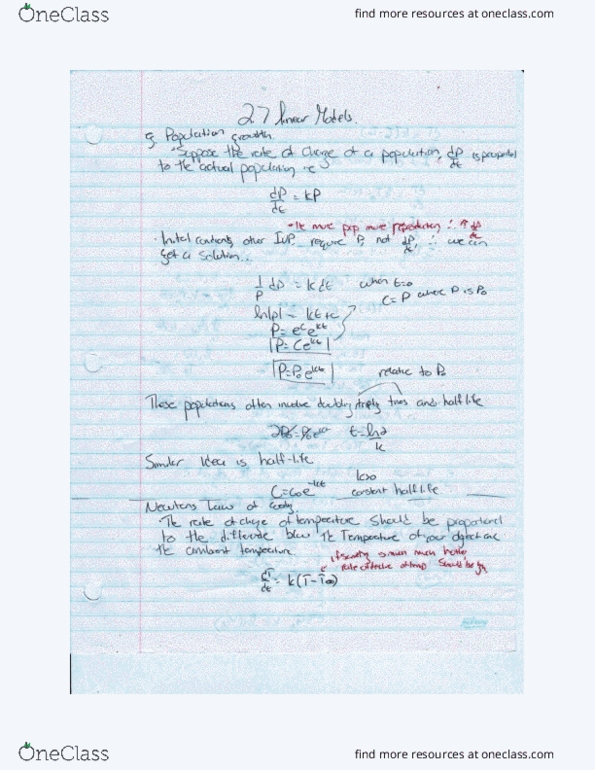 OneClass
find more resources at oneclass.com
2.7 linear Models.
eg Population growth
• Suppose the rate of change of a population, dP/dt is
to the actual population
dP/dt = kP
• more pop more ∴ ↑ dP/dt
• other IVP require P not dP/dt ∴ we can
get a solution..
1/P dP = k dt when t=0
C = P where P is P₀
ln|P| = kt+c
P = e^c e^kt
P = Ce^kt
P = P₀e^kt relative to P₀
These populations often involve doubling tripling times and half life
2P₀ = P₀e^kt t = ln2/k
Similar idea is half-life
C = C₀e^-kt k>0
constant half life
Newtons Law of
• The rate of change of temperature should be proportional
to the btw the Temperature of your object and
the ambient temperature
if something is much much hotter
rate of change of temp should be
dT/dt = k(T-T∞)
OneClass
find more resources at oneclass.com